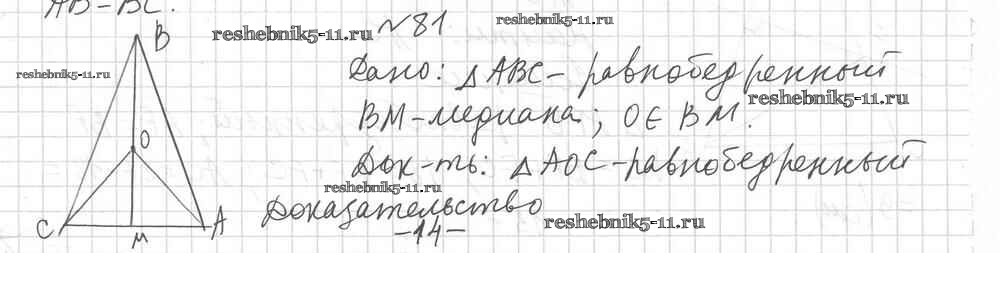 AB-BC.
№81
reshebnik5-11.ru
reshebnik5-11.ru
reshebnik5-11.ru
B
Дано: △ABC- равнобедренный
reshebnik5-11.ru
BM-медиана; O∈BM.
O
Док-ть: △AOC-равнобедренный
reshebnik5-11.ru
Доказательство
reshebnik5-11.ru
C
M
A
-14-